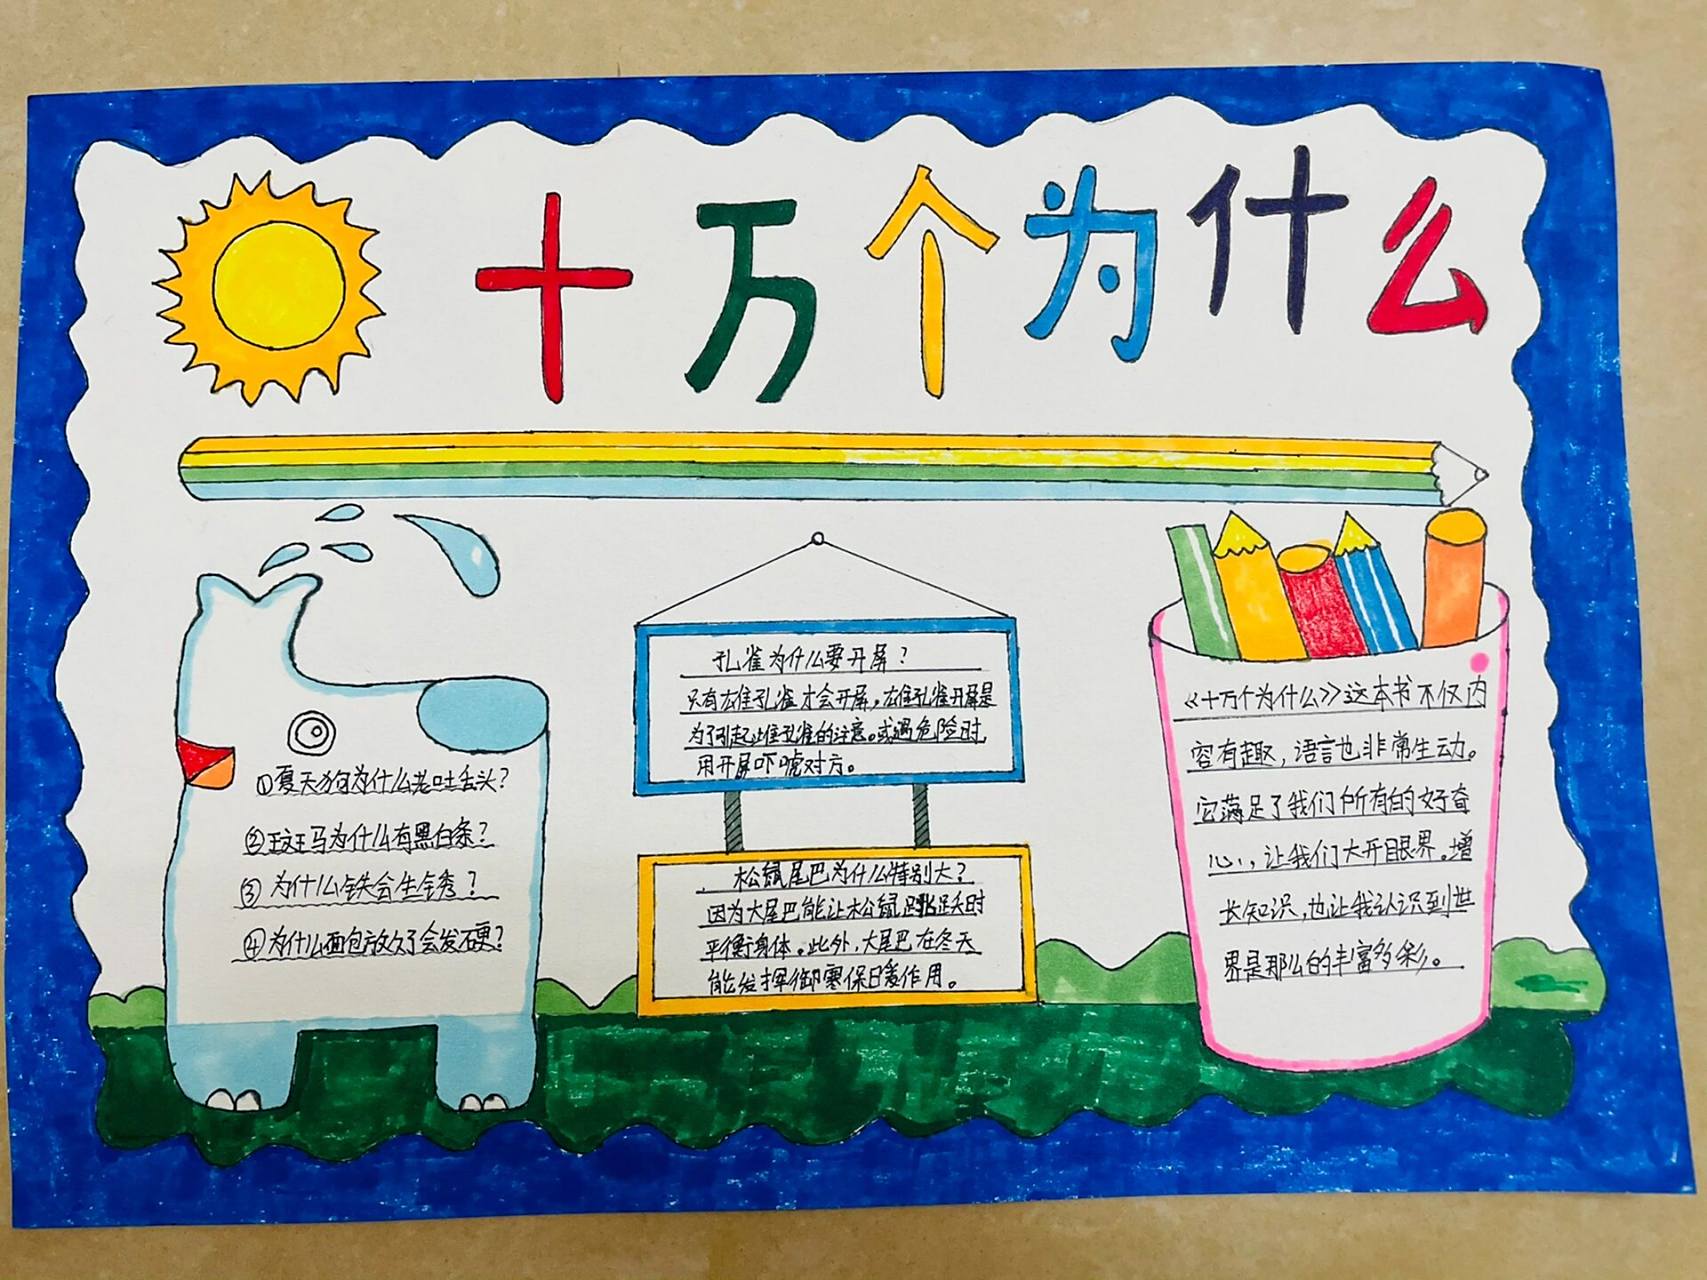 十万个为什么
①夏天狗为什么老吐舌头?
②斑马为什么有黑白条?
③为什么铁会生锈?
④为什么面包放久了会发硬?
孔雀为什么要开屏?
只有雄孔雀才会开屏,雄孔雀开屏是
为了引起雌孔雀的注意。或遇危险时
用开屏吓唬对方。
松鼠尾巴为什么特别大?
因为大尾巴能让松鼠跳跃时
平衡身体。此外,大尾巴在冬天
能发挥御寒保暖作用。
《十万个为什么》这本书不仅内
容有趣,语言也非常生动。
它满足了我们所有的好奇
心,让我们大开眼界。增
长知识,也让我认识到世
界是那么的丰富多彩。